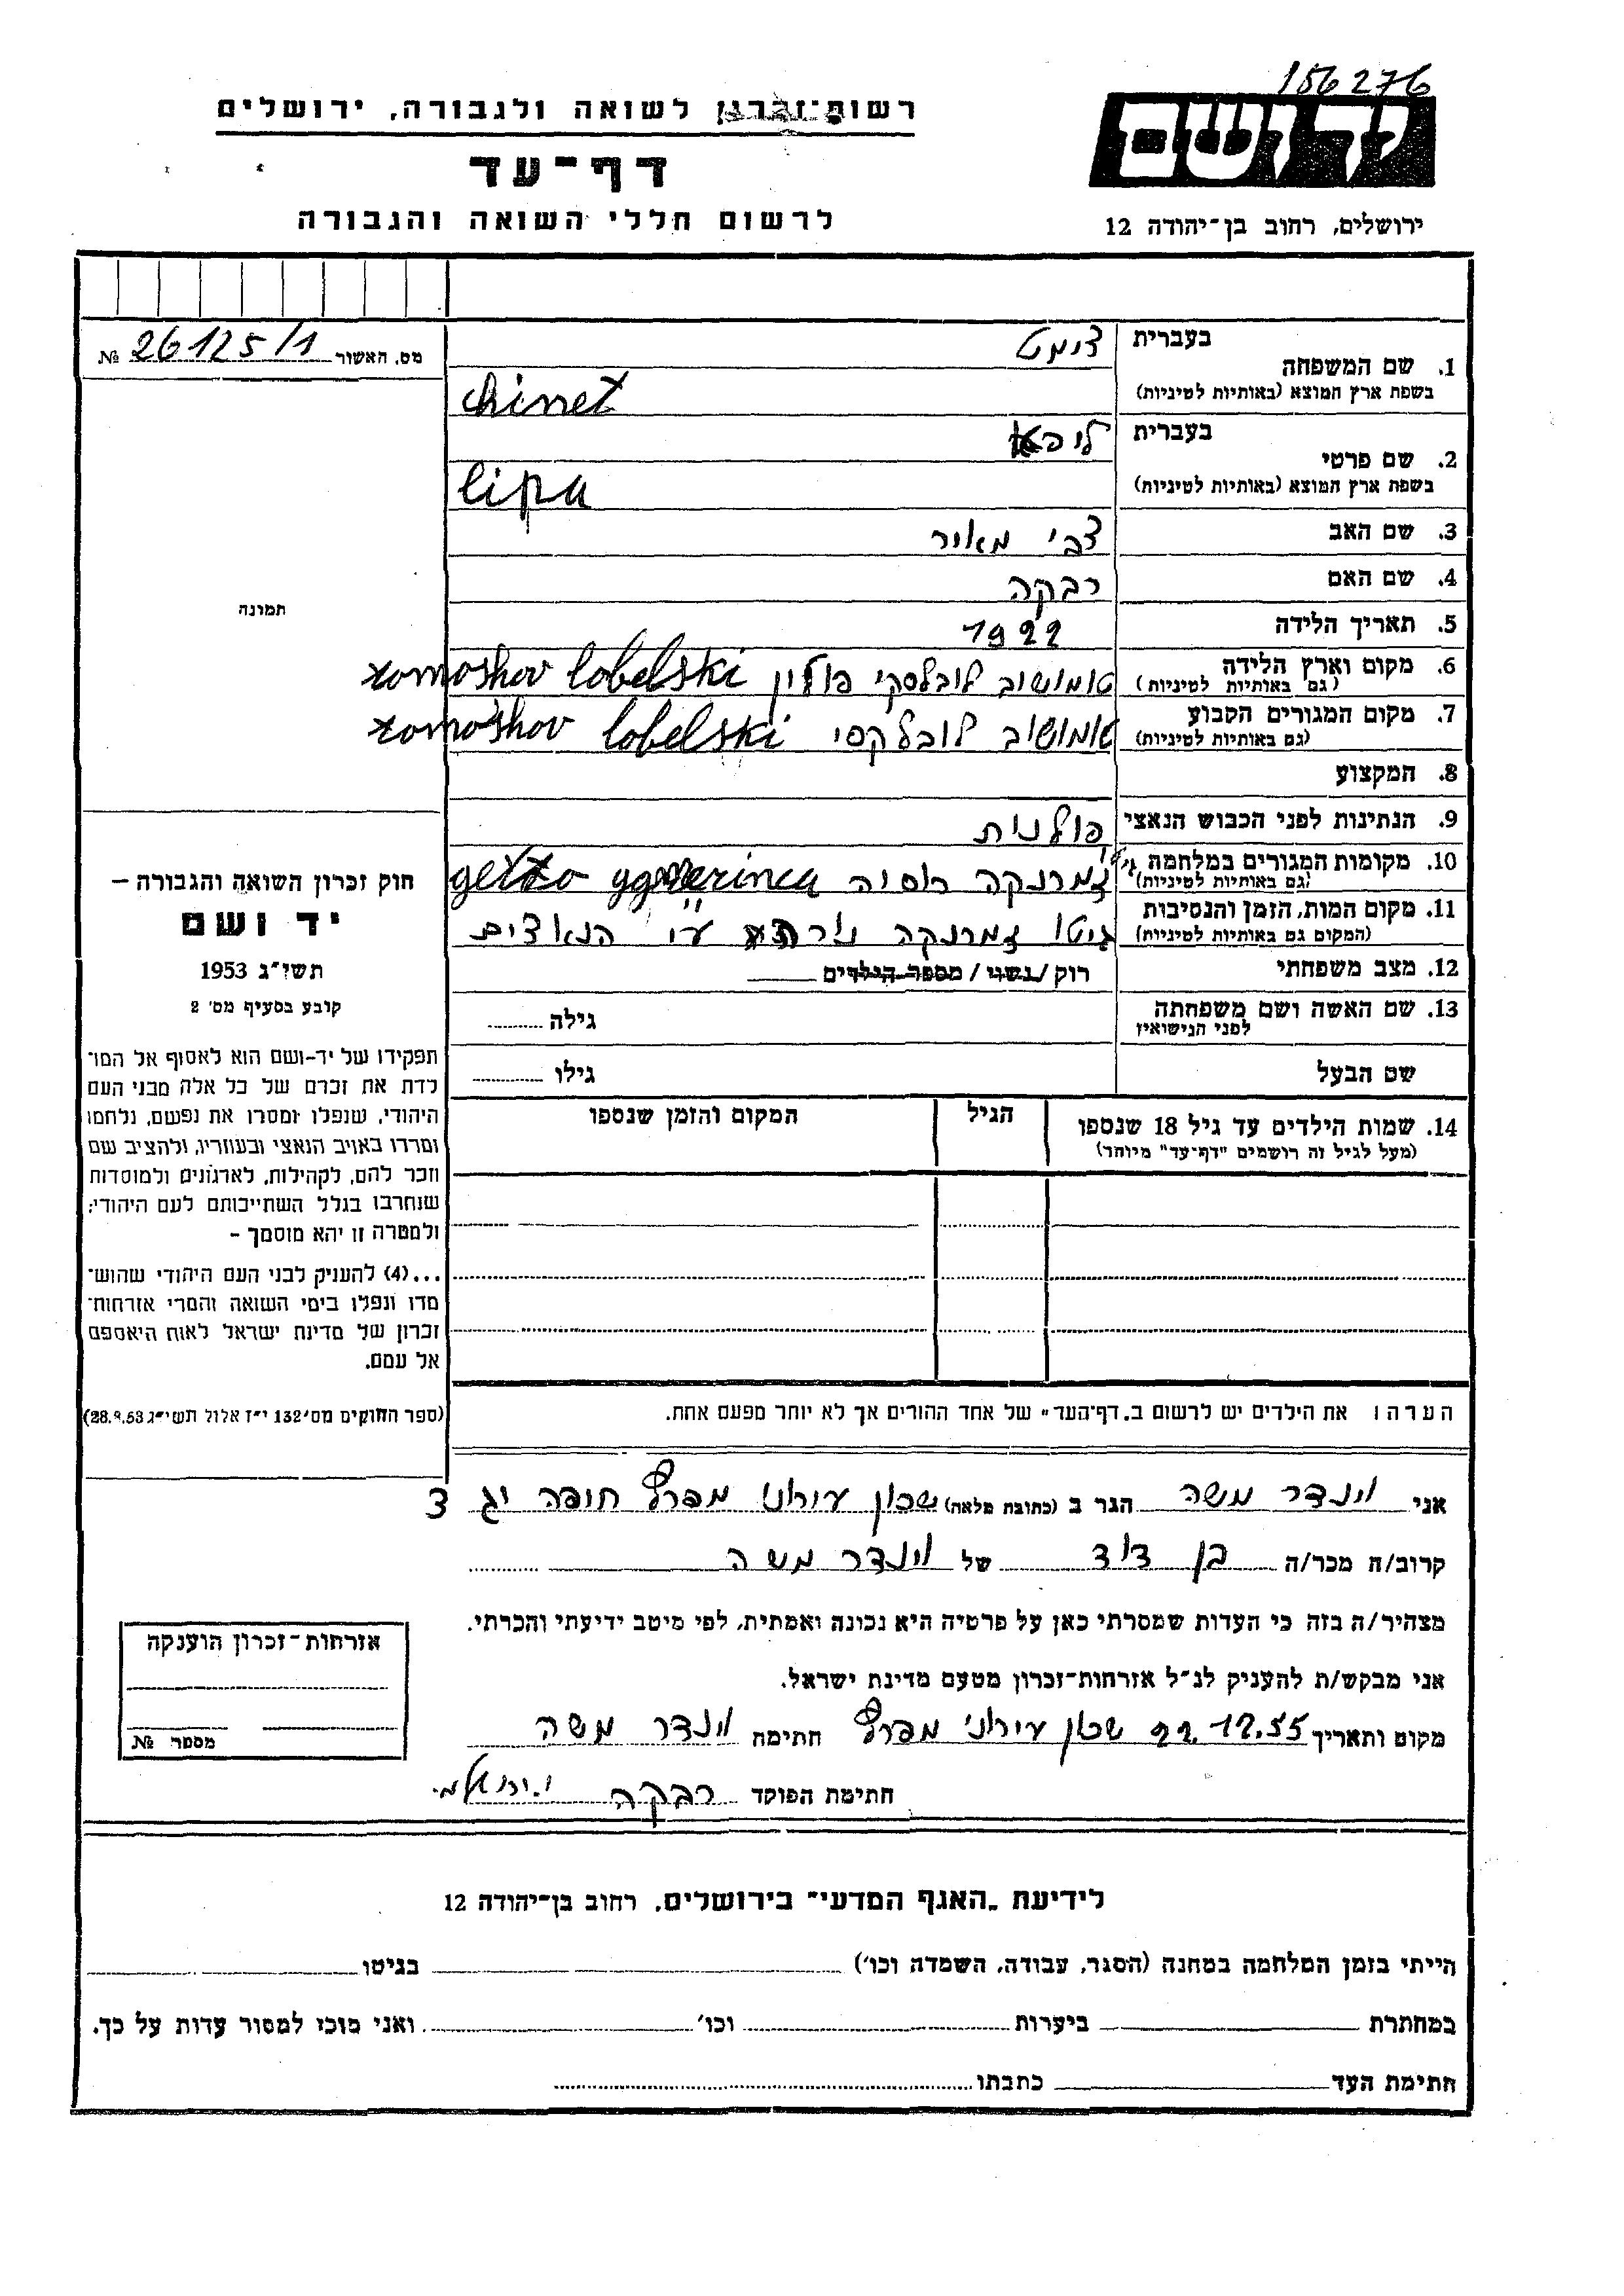 156276
רשות־זכרון לשואה ולגבורה, ירושלים
יד ושם
דף־עד
לרשום חללי השואה והגבורה
ירושלים, רחוב בן־יהודה 12
מס. האשור 26125/1 №
1. שם המשפחה
בעברית צימט
בשפת ארץ המוצא (באותיות לטיניות) chimet
2. שם פרטי
בעברית ליפא
בשפת ארץ המוצא (באותיות לטיניות) lipa
3. שם האב צבי מאיר
4. שם האם רבקה
תמונה
5. תאריך הלידה 1922
6. מקום וארץ הלידה (גם באותיות לטיניות) טומושוב לובלסקי פולין tomoshov lobelski
7. מקום המגורים הקבוע (גם באותיות לטיניות) טומושוב לובלקסי tomoshov lobelski
8. המקצוע
9. הנתינות לפני הכבוש הנאצי פולנית
10. מקומות המגורים במלחמה (גם באותיות לטיניות) זמרנקה רוסיה getto
11. מקום המות, הזמן והנסיבות (המקום גם באותיות לטיניות) גיטו זמרנקה ע״י הנאצים
12. מצב משפחתי רוק / נשוי / מספר הילדים
13. שם האשה ושם משפחתה לפני הנישואין גילה
שם הבעל גילו
14. שמות הילדים עד גיל 18 שנספו
(מעל לגיל זה רושמים "דף־עד" מיוחד)
הגיל
המקום והזמן שנספו
חוק זכרון השואה והגבורה –
יד ושם
תשי״ג 1953
קובע בסעיף מס׳ 2
תפקידו של יד-ושם הוא לאסוף אל המו־
לדת את זכרם של כל אלה מבני העם
היהודי, שנפלו ומסרו את נפשם, נלחמו
ומרדו באויב הנאצי ובעוזריו, ולהציב שם
וזכר להם, לקהילות, לארגונים ולמוסדות
שנחרבו בגלל השתייכותם לעם היהודי;
ולמטרה זו יהא מוסמך –
...(4) להעניק לבני העם היהודי שהוש־
מדו ונפלו בימי השואה והמרי אזרחות־
זכרון של מדינת ישראל לאות היאספם
אל עמם.
(ספר החוקים מס׳ 132 י״ז אלול תשי״ג 28.8.53)
הערה: את הילדים יש לרשום ב„דף־העד" של אחד ההורים אך לא יותר מפעם אחת.
אני וינדר משה הגר ב (כתובת מלאה) שכון עירוני מפרץ חיפה יג 3
קרוב/ה מכר/ה בן דוד של וינדר משה
מצהיר/ה בזה כי העדות שמסרתי כאן על פרטיה היא נכונה ואמתית, לפי מיטב ידיעתי והכרתי.
אני מבקש/ת להעניק לנ״ל אזרחות־זכרון מטעם מדינת ישראל.
מקום ותאריך 22.12.55 שכון עירוני מפרץ חתימה וינדר משה
חתימת הפוקד רבקה
אזרחות־זכרון הוענקה
מספר №
לידיעת „האגף המדעי" בירושלים, רחוב בן־יהודה 12
הייתי בזמן המלחמה במחנה (הסגר, עבודה, השמדה וכו׳) בגיטו
במחתרת ביערות וכו׳ ואני מוכן למסור עדות על כך.
חתימת העד כתבתו